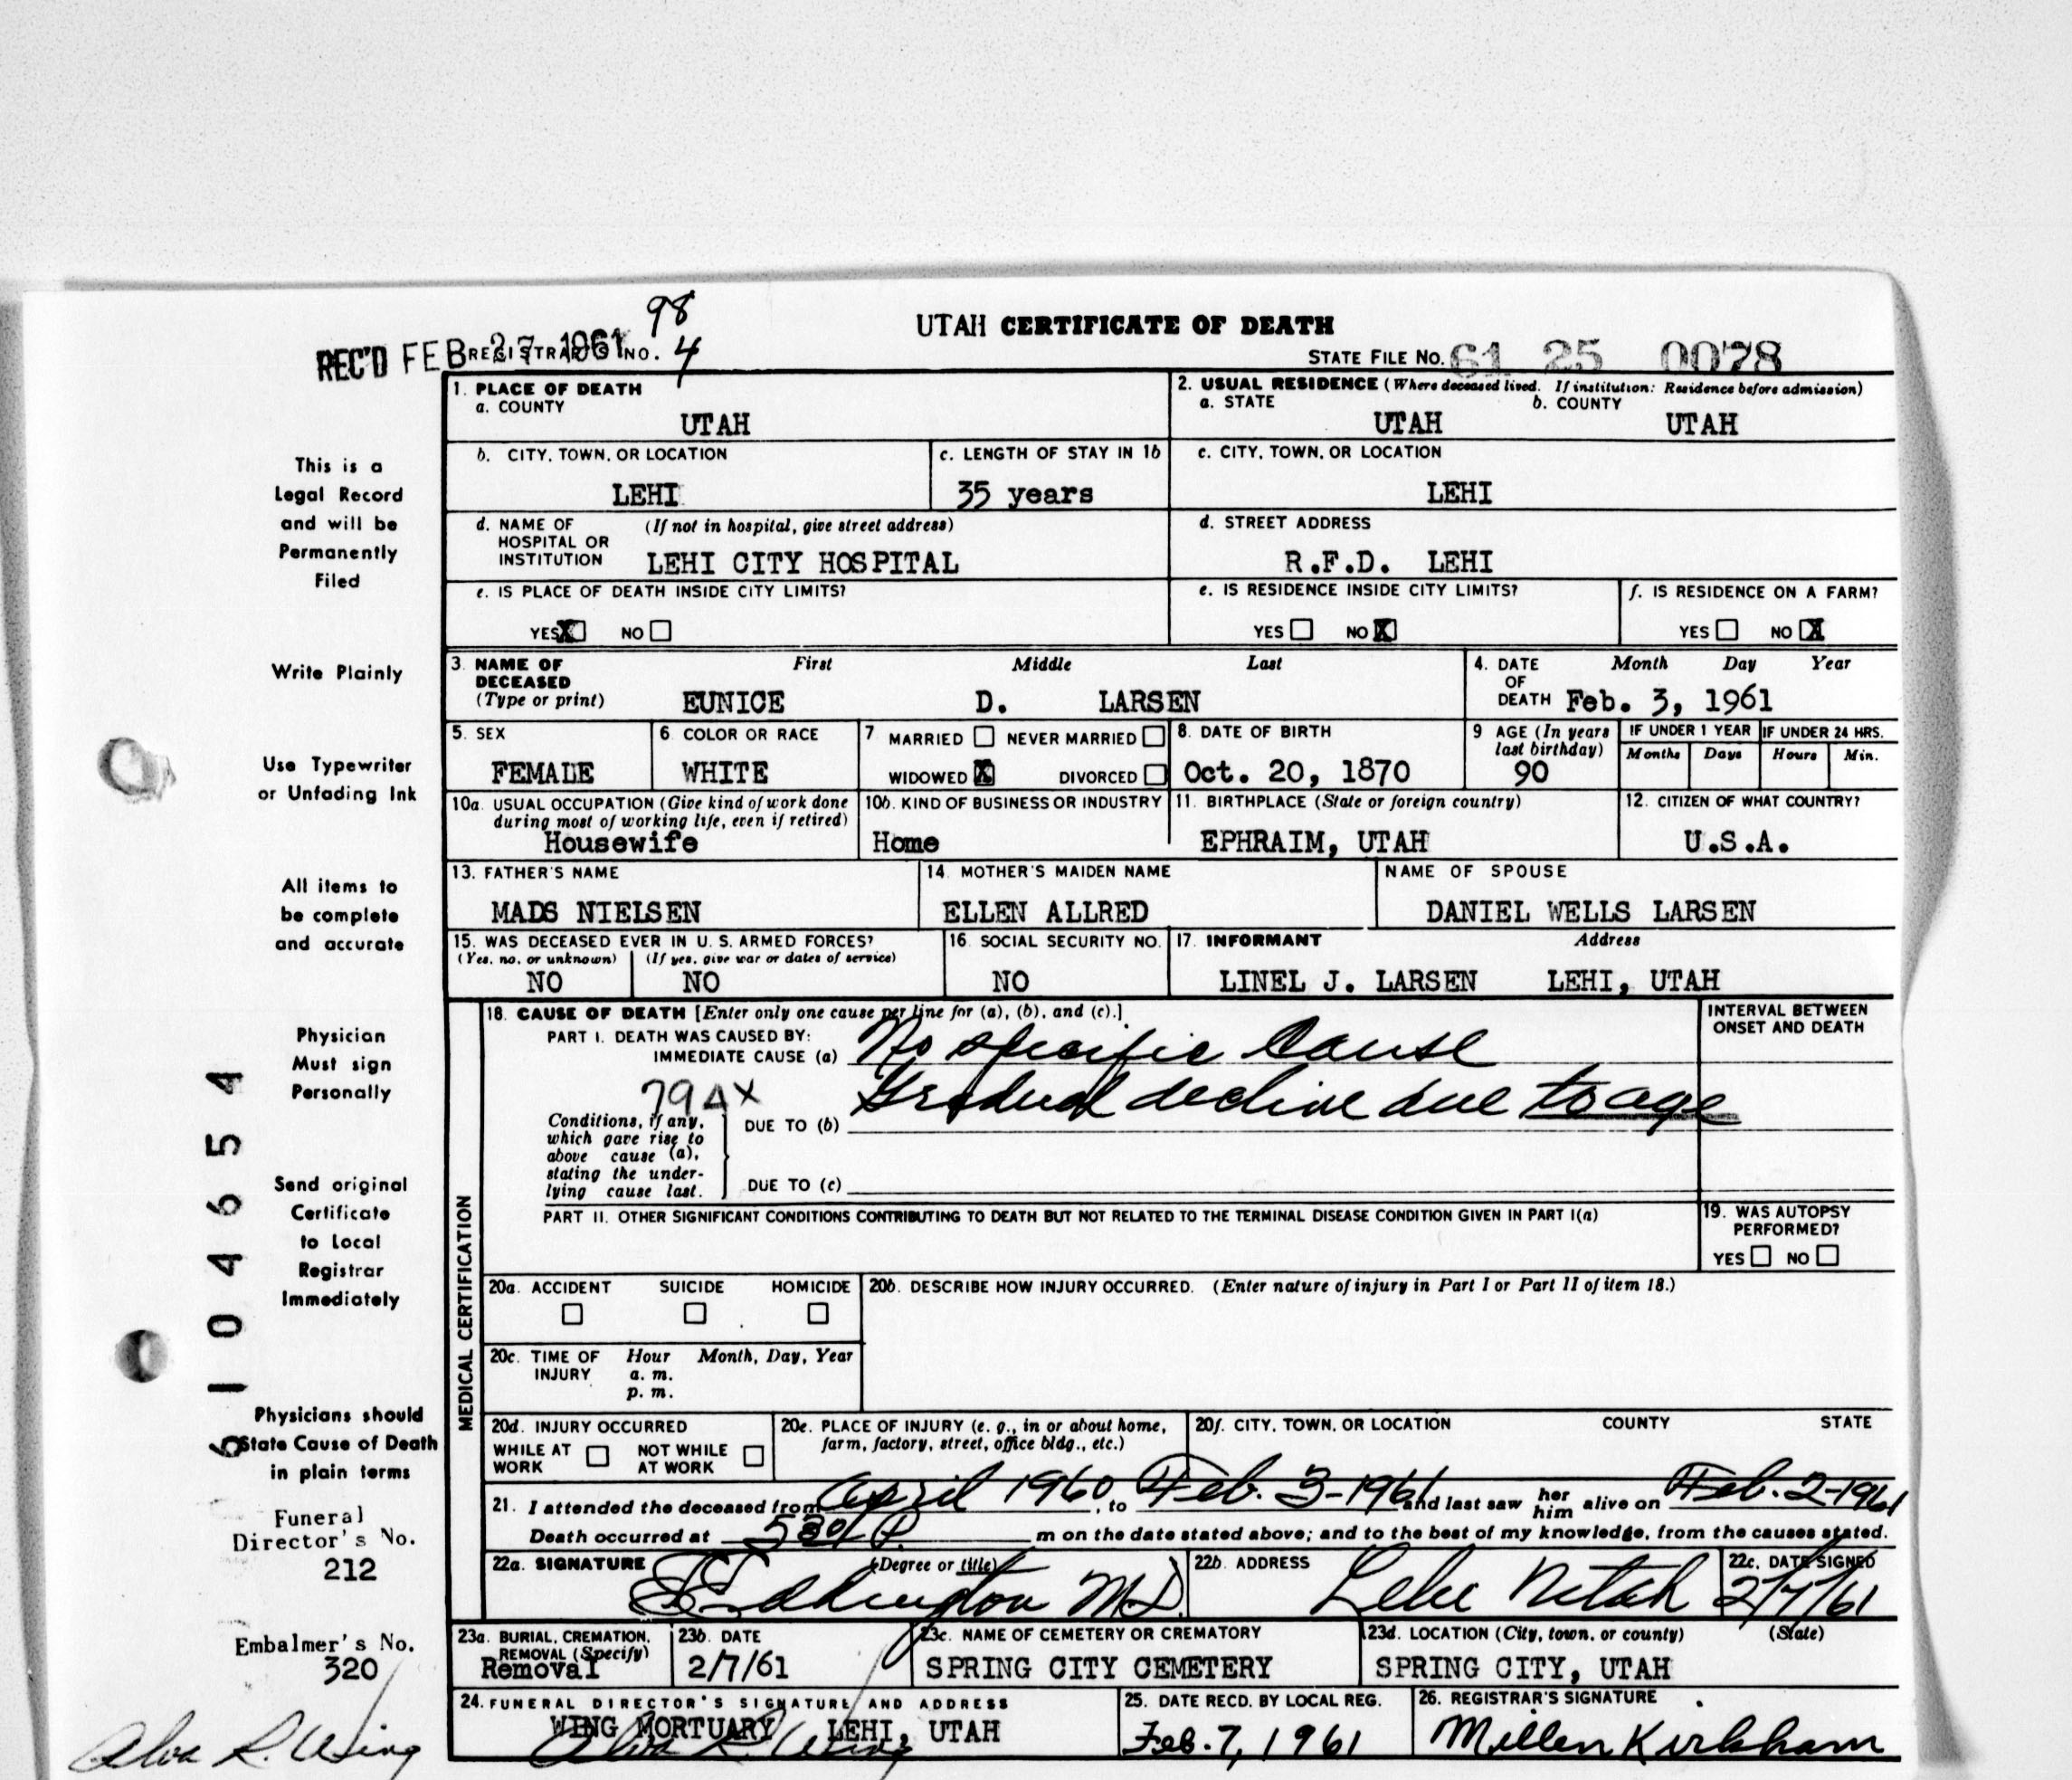 98
UTAH CERTIFICATE OF DEATH
REC'D FEB 27 1961 REGISTRAR'S NO. 4
STATE FILE NO. 61 25 0078
1. PLACE OF DEATH
a. COUNTY
UTAH
2. USUAL RESIDENCE (Where deceased lived. If institution: Residence before admission)
a. STATE b. COUNTY
UTAH UTAH
b. CITY, TOWN, OR LOCATION
LEHI
c. LENGTH OF STAY IN 1b
35 years
c. CITY, TOWN, OR LOCATION
LEHI
d. NAME OF HOSPITAL OR INSTITUTION (If not in hospital, give street address)
LEHI CITY HOSPITAL
d. STREET ADDRESS
R.F.D. LEHI
e. IS PLACE OF DEATH INSIDE CITY LIMITS?
YES X NO
e. IS RESIDENCE INSIDE CITY LIMITS?
YES NO X
f. IS RESIDENCE ON A FARM?
YES NO X
3. NAME OF DECEASED (Type or print)
First Middle Last
EUNICE D. LARSEN
4. DATE OF DEATH Month Day Year
Feb. 3, 1961
5. SEX
FEMALE
6. COLOR OR RACE
WHITE
7 MARRIED NEVER MARRIED
WIDOWED X DIVORCED
8. DATE OF BIRTH
Oct. 20, 1870
9 AGE (In years last birthday)
90
IF UNDER 1 YEAR IF UNDER 24 HRS.
Months Days Hours Min.
10a. USUAL OCCUPATION (Give kind of work done during most of working life, even if retired)
Housewife
10b. KIND OF BUSINESS OR INDUSTRY
Home
11. BIRTHPLACE (State or foreign country)
EPHRAIM, UTAH
12. CITIZEN OF WHAT COUNTRY?
U.S.A.
13. FATHER'S NAME
MADS NIELSEN
14. MOTHER'S MAIDEN NAME
ELLEN ALLRED
NAME OF SPOUSE
DANIEL WELLS LARSEN
15. WAS DECEASED EVER IN U.S. ARMED FORCES?
(Yes, no, or unknown) (If yes, give war or dates of service)
NO NO
16. SOCIAL SECURITY NO.
NO
17. INFORMANT Address
LINEL J. LARSEN LEHI, UTAH
MEDICAL CERTIFICATION
18. CAUSE OF DEATH [Enter only one cause per line for (a), (b), and (c).]
INTERVAL BETWEEN ONSET AND DEATH
PART I. DEATH WAS CAUSED BY:
IMMEDIATE CAUSE (a) No specific Cause
794X Gradual decline due to age
Conditions, if any, which gave rise to above cause (a), stating the underlying cause last.
DUE TO (b)
DUE TO (c)
PART II. OTHER SIGNIFICANT CONDITIONS CONTRIBUTING TO DEATH BUT NOT RELATED TO THE TERMINAL DISEASE CONDITION GIVEN IN PART I(a)
19. WAS AUTOPSY PERFORMED?
YES NO
20a. ACCIDENT SUICIDE HOMICIDE
20b. DESCRIBE HOW INJURY OCCURRED. (Enter nature of injury in Part I or Part II of item 18.)
20c. TIME OF INJURY Hour Month, Day, Year
a. m.
p. m.
20d. INJURY OCCURRED
WHILE AT WORK NOT WHILE AT WORK
20e. PLACE OF INJURY (e. g., in or about home, farm, factory, street, office bldg., etc.)
20f. CITY, TOWN, OR LOCATION COUNTY STATE
21. I attended the deceased from April 1960, to Feb. 3-1961 and last saw her him alive on Feb. 2-1961
Death occurred at P. m on the date stated above; and to the best of my knowledge, from the causes stated.
22a. SIGNATURE (Degree or title)
Eddington M.D.
22b. ADDRESS
Lehi Utah
22c. DATE SIGNED
2/7/61
23a. BURIAL, CREMATION, REMOVAL (Specify)
Removal
23b. DATE
2/7/61
23c. NAME OF CEMETERY OR CREMATORY
SPRING CITY CEMETERY
23d. LOCATION (City, town, or county) (State)
SPRING CITY, UTAH
24. FUNERAL DIRECTOR'S SIGNATURE AND ADDRESS
WING MORTUARY LEHI, UTAH
Alva R. Wing
25. DATE RECD. BY LOCAL REG.
Feb. 7, 1961
26. REGISTRAR'S SIGNATURE
Millen Kirkham
This is a
Legal Record
and will be
Permanently
Filed
Write Plainly
Use Typewriter
or Unfading Ink
All items to
be complete
and accurate
Physician
Must sign
Personally
Send original
Certificate
to Local
Registrar
Immediately
Physicians should
State Cause of Death
in plain terms
Funeral
Director's No.
212
Embalmer's No.
320
Alva R. Wing
6104654